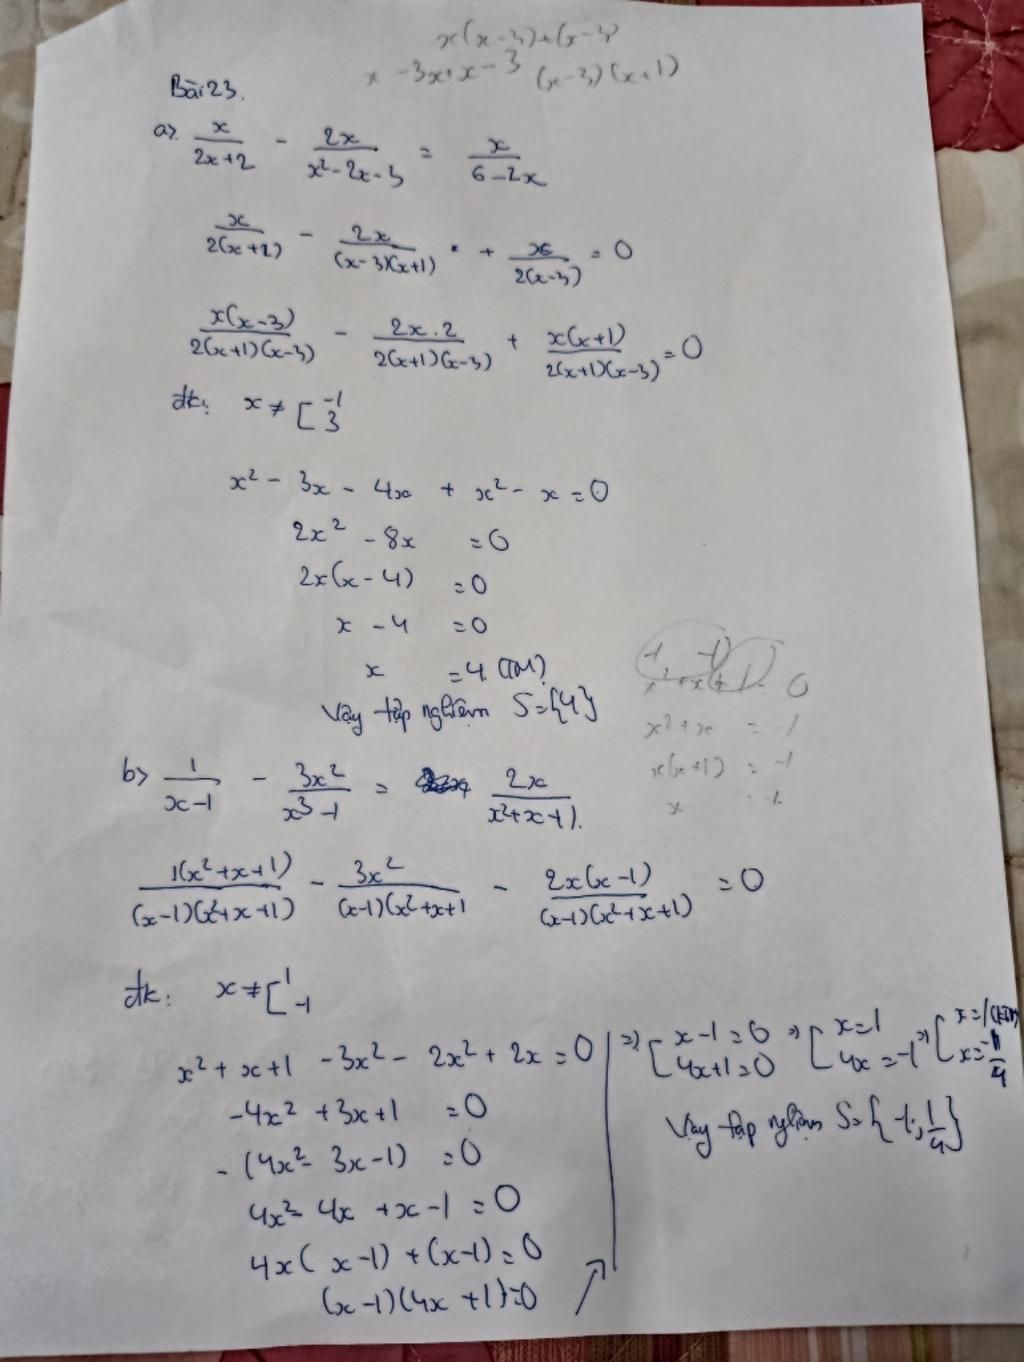 x(x-3)+(x-3)
x -3x+x-3 (x-3)(x+1)
Bài 23.
a> x/(2x+2) - 2x/(x²-2x-3) = x/(6-2x)
x/(2(x+2)) - 2x/((x-3)(x+1)) + x/(2(x-3)) = 0
x(x-3)/(2(x+1)(x-3)) - 2x.2/(2(x+1)(x-3)) + x(x+1)/(2(x+1)(x-3)) = 0
đk: x ≠ [ -1 3
x² - 3x - 4x + x² - x = 0
2x² - 8x = 0
2x(x-4) = 0
x - 4 = 0
x = 4 (TM)
Vậy tập nghiệm S={4}
x²+x+1 = 0
x²+x = -1
x(x+1) = -1
x
b> 1/(x-1) - 3x²/(x³-1) = 2x/(x²+x+1).
1(x²+x+1)/((x-1)(x²+x+1)) - 3x²/((x-1)(x²+x+1 - 2x(x-1)/((x-1)(x²+x+1)) = 0
đk: x ≠ [ 1 -1
x² + x+1 - 3x² - 2x² + 2x = 0
-4x² + 3x+1 = 0
- (4x² - 3x-1) = 0
4x² - 4x + x - 1 = 0
4x( x-1) + (x-1) = 0
(x-1)(4x +1) = 0
=> [ x-1=0 4x+1=0 => [ x=1 4x=-1 => [ x=1 (KTM) x=-1/4
Vậy tập nghiệm S={ -1; 1/4 }